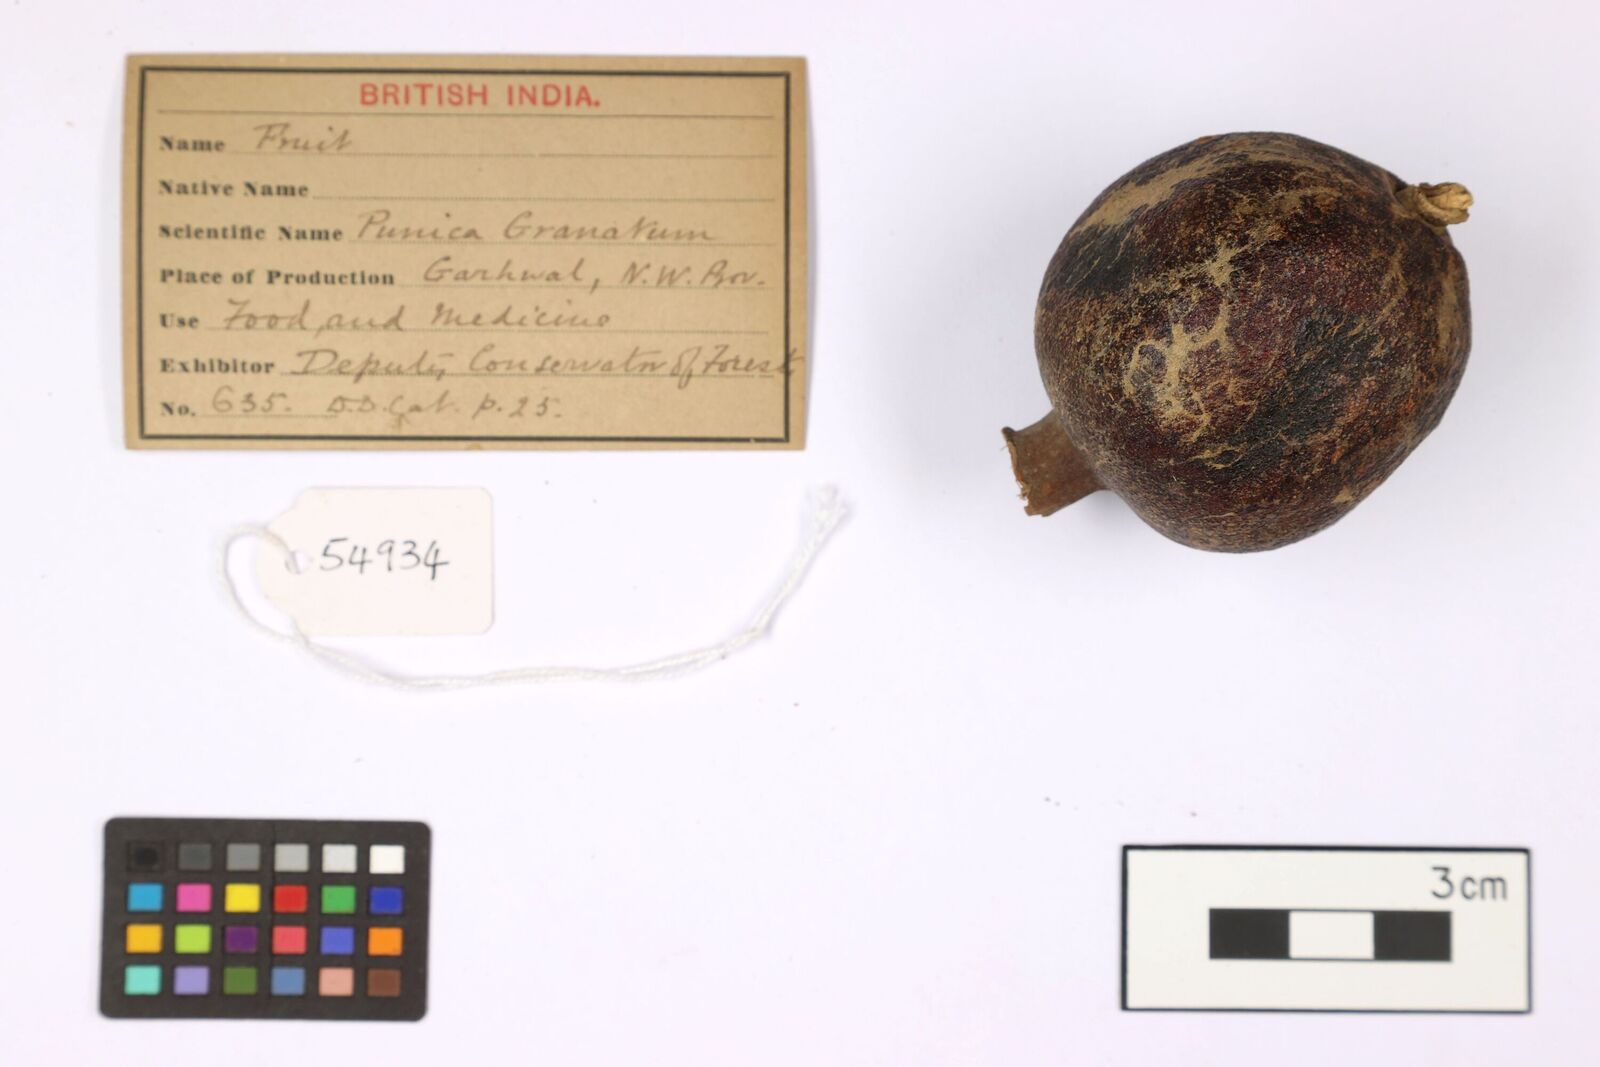 BRITISH INDIA.
Name Fruit
Native Name
Scientific Name Punica Granatum
Place of Production Garhwal, N.W. Prov.
Use Food, and Medicine
Exhibitor Deputy Conservator of Forests
No. 635. D.D. Cat. p. 25.
54934
3cm